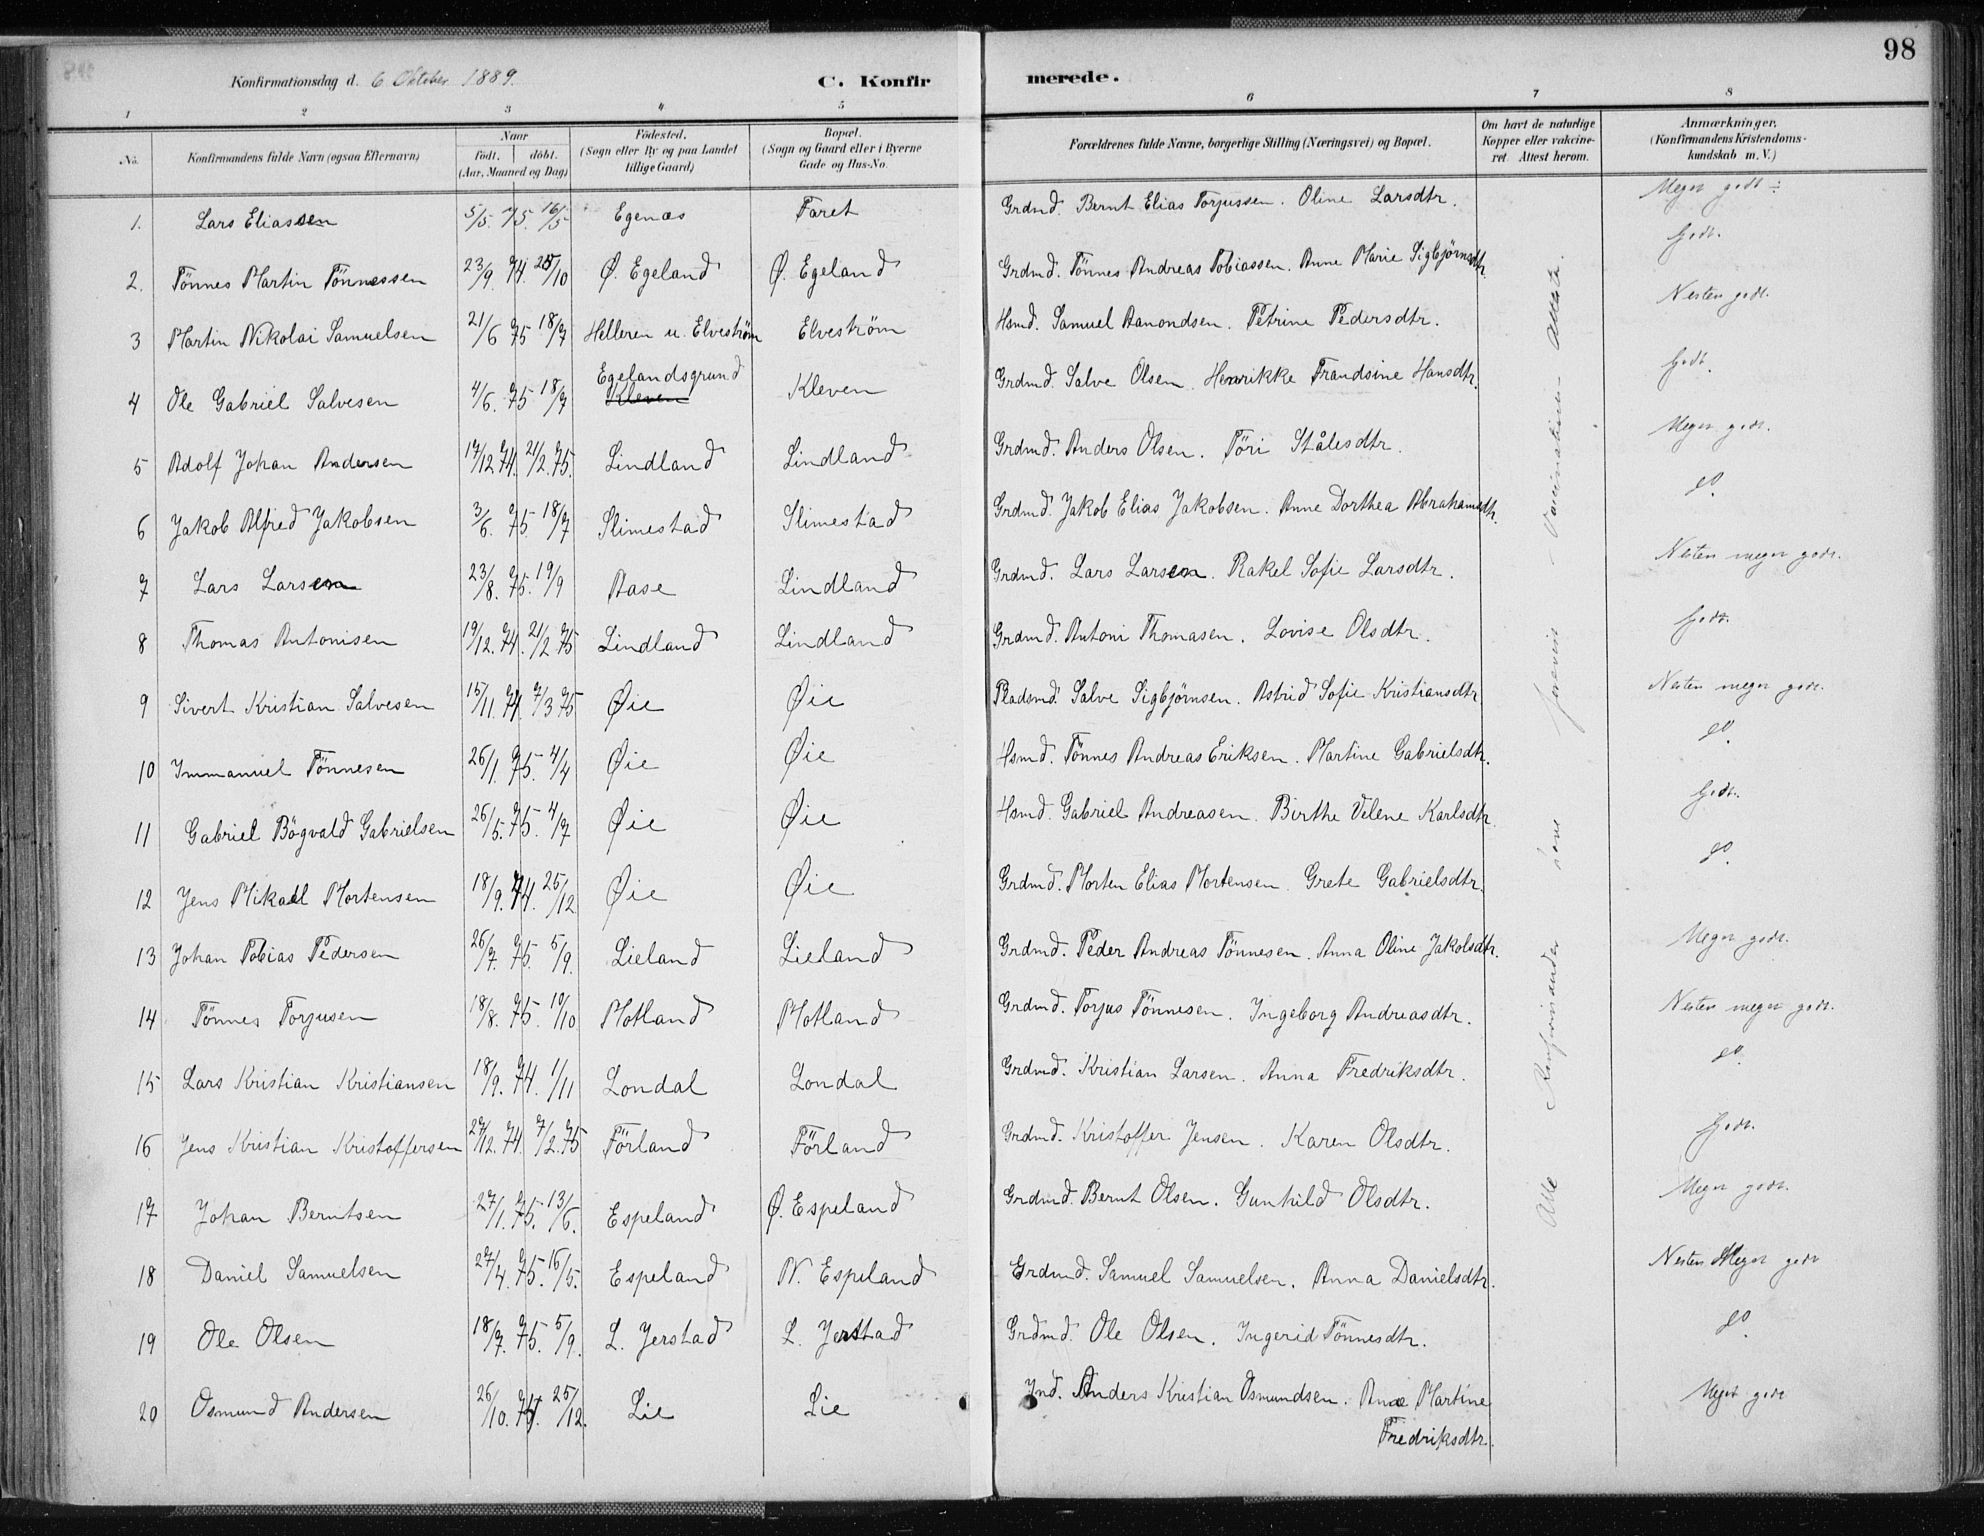 98
Konfirmationsdag d. 6 Oktober 1889.
C. Konfirmerede.
1 2 3 4 5 6 7 8
No.
Konfirmandens fulde Navn (ogsaa Efternavn)
Naar
födt. | döbt.
(Aar, Maaned og Dag)
Födested.
(Sogn eller By og paa Landet
tillige Gaard)
Bopæl.
(Sogn og Gaard eller i Byerne
Gade og Hus-No.
Forældrenes fulde Navne, borgerlige Stilling (Næringsvei) og Bopæl.
Om havt de naturlige
Kopper eller vakcine-
ret. Attest herom.
Anmærkninger.
(Konfirmandens Kristendoms-
kundskab m. V.)
1. Lars Eliassen 5/5. 75. 16/5 Egenæs Faret Grdmd. Bernt Elias Torjussen. Oline Larsdtr. Meget godt
2. Tönnes Martin Tönnessen 23/9. 74. 25/10 Ø. Egeland Ø. Egeland Grdmd. Tönnes Andreas Tobiassen. Anne Marie Sigbjörnsdtr. Godt.
3 Martin Nikolai Samuelsen 21/6 75 18/7 Helleren u. Elveström Elveström Hsmd. Samuel Aanondsen. Petrine Pedersdtr. Nesten godt.
4 Ole Gabriel Salvesen 4/6. 75 18/7 Egelandsgrund Kleven Kleven Grdmd. Salve Olsen. Henrikke Frandsine Hansdtr. Godt.
5 Adolf Johan Andersen 17/12 74. 21/2. 75. Lindland Lindland Grdmd. Anders Olsen. Töri Stålesdtr. Meget godt.
6 Jakob Alfred Jakobsen 3/6. 75. 18/7 Slimestad Slimestad Grdmd. Jakob Elias Jakobsen. Anne Dorthea Abrahamsdtr. do.
7 Lars Larsen 23/8. 75. 19/9 Aase Lindland Grdmd. Lars Larsen. Rakel Sofie Larsdtr. Nesten meget godt.
8 Thomas Antonisen 19/12. 74. 21/2 75 Lindland Lindland Grdmd. Antoni Thomasen. Lovise Olsdtr. Godt.
9 Sivert Kristian Salvesen 15/11. 74. 7/3 75 Øie Øie Pladsmd. Salve Sigbjörnsen. Astrid Sofie Kristiansdtr. Nesten meget godt.
10 Immanuel Tönnesen 26/1. 75. 4/4 Øie Øie Hsmd. Tönnes Andreas Eriksen. Martine Gabrielsdtr. do.
11 Gabriel Bögvald Gabrielsen 26/5. 75. 4/7 Øie Øie Hsmd. Gabriel Andreasen. Birthe Velene Karlsdtr. Godt.
12 Jens Mikael Mortensen 18/9. 74. 25/12 Øie Øie Grdmd. Morten Elias Mortensen. Grete Gabrielsdtr. do.
13 Johan Tobias Pedersen 26/7. 75. 5/9. Lieland Lieland Grdmd. Peder Andreas Tönnesen. Anna Oline Jakobsdtr. Meget godt.
14 Tönnes Torjusen 18/8. 75. 10/10 Motland Motland Grdmd. Torjus Tönnesen. Ingeborg Andreasdtr. Nesten meget godt.
15 Lars Kristian Kristiansen 18/9. 74. 1/11 Londal Londal Grdmd. Kristian Larsen. Anna Fredriksdtr. do.
16 Jens Kristian Kristoffersen 27/12. 74. 7/2. 75 Förland Förland Grdmd. Kristoffer Jensen. Karen Olsdtr. Godt.
17 Johan Berntsen 27/1. 75. 13/6. Espeland Ø. Espeland Grdmd. Bernt Olsen. Gunhild Olsdtr. Meget godt.
18 Daniel Samuelsen 27/4. 75. 16/5. Espeland N. Espeland Grdmd. Samuel Samuelsen. Anna Danielsdtr. Nesten Meget godt
19 Ole Olsen 18/7. 75. 5/9. L. Jerstad L. Jerstad Grdmd. Ole Olsen. Ingerid Tönnesdtr. do.
20 Osmund Andersen 26/10. 74. 25/12. Lie Lie Ind. Anders Kristian Osmundsen. Ane Martine
Fredriksdtr. Meget godt
Alle Konfirmander have forevist Vaccinations Attester.